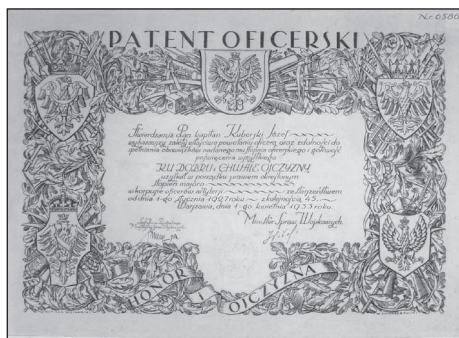 Nr 6580
PATENT OFICERSKI
Stwierdzenia Pan kapitan Kuberski Józef
wykazawszy zalety właściwe powołaniu oficera oraz zdolności do
spełniania obowiązków nadanego mu stopnia oficerskiego i gotowość
poświęcenia wszystkiego
KU DOBRU i CHWALE OJCZYZNY
uzyskał w porządku prawem określonym
stopień majora
w korpusie oficerów artylerji ze starszeństwem
od dnia 1-go stycznia 1927 roku z kolejnością 45.
Warszawa, dnia 1-go kwietnia 1933 roku.
Minister Spraw Wojskowych
HONOR I OJCZYZNA